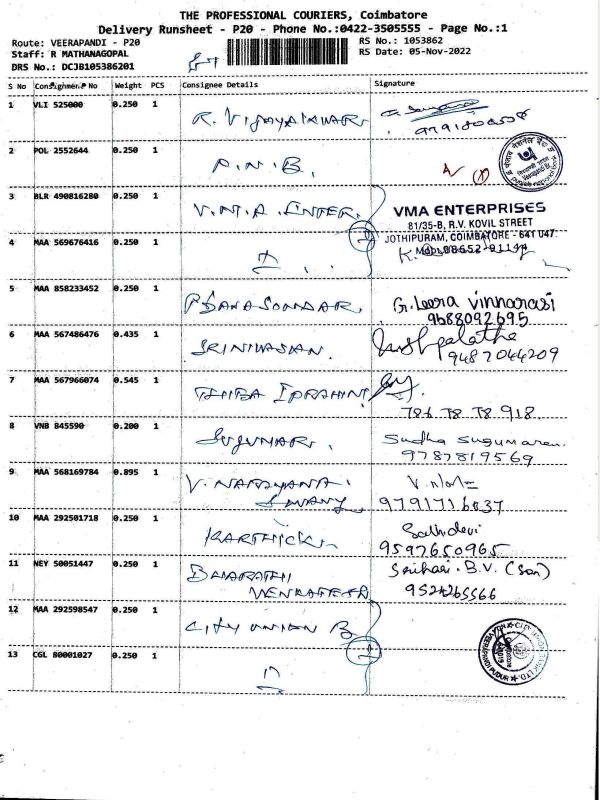 THE PROFESSIONAL COURIERS, Coimbatore
Delivery Runsheet - P20 - Phone No.:0422-3505555 - Page No.:1
Route: VEERAPANDI - P20
Staff: R MATHANAGOPAL
DRS No.: DCJB105386201
RS No.: 1053862
RS Date: 05-Nov-2022
S No Consignment No Weight PCS Consignee Details Signature
1 VLI 525000 0.250 1 R. VIJAYAKUMAR
2 POL 2552644 0.250 1 P.N.B.
3 BLR 490816280 0.250 1 V.M.A. ENTER.
VMA ENTERPRISES
81/35-B, R.V. KOVIL STREET
JOTHIPURAM, COIMBATORE - 641 047.
4 MAA 569676416 0.250 1
5 MAA 858233452 0.250 1
G. Leera vinnarasi
9688092695
6 MAA 567486476 0.435 1 SRINIVASAN.
9487044209
7 MAA 567966074 0.545 1
786 78 78 918.
8 VNB 845590 0.200 1 SUGUMAR.
Sudha Sugumaran.
9787819569
9 MAA 568169784 0.895 1 V. NARAYANA
SWAMY
9791716037
10 MAA 292501718 0.250 1 KARTHICK.
9597650965
11 NEY 50051447 0.250 1 BHARATHI
VENKATESH
Srihari. B.V. (Son)
9524265566
12 MAA 292598547 0.250 1 CITY UNION B
13 CGL 80001027 0.250 1